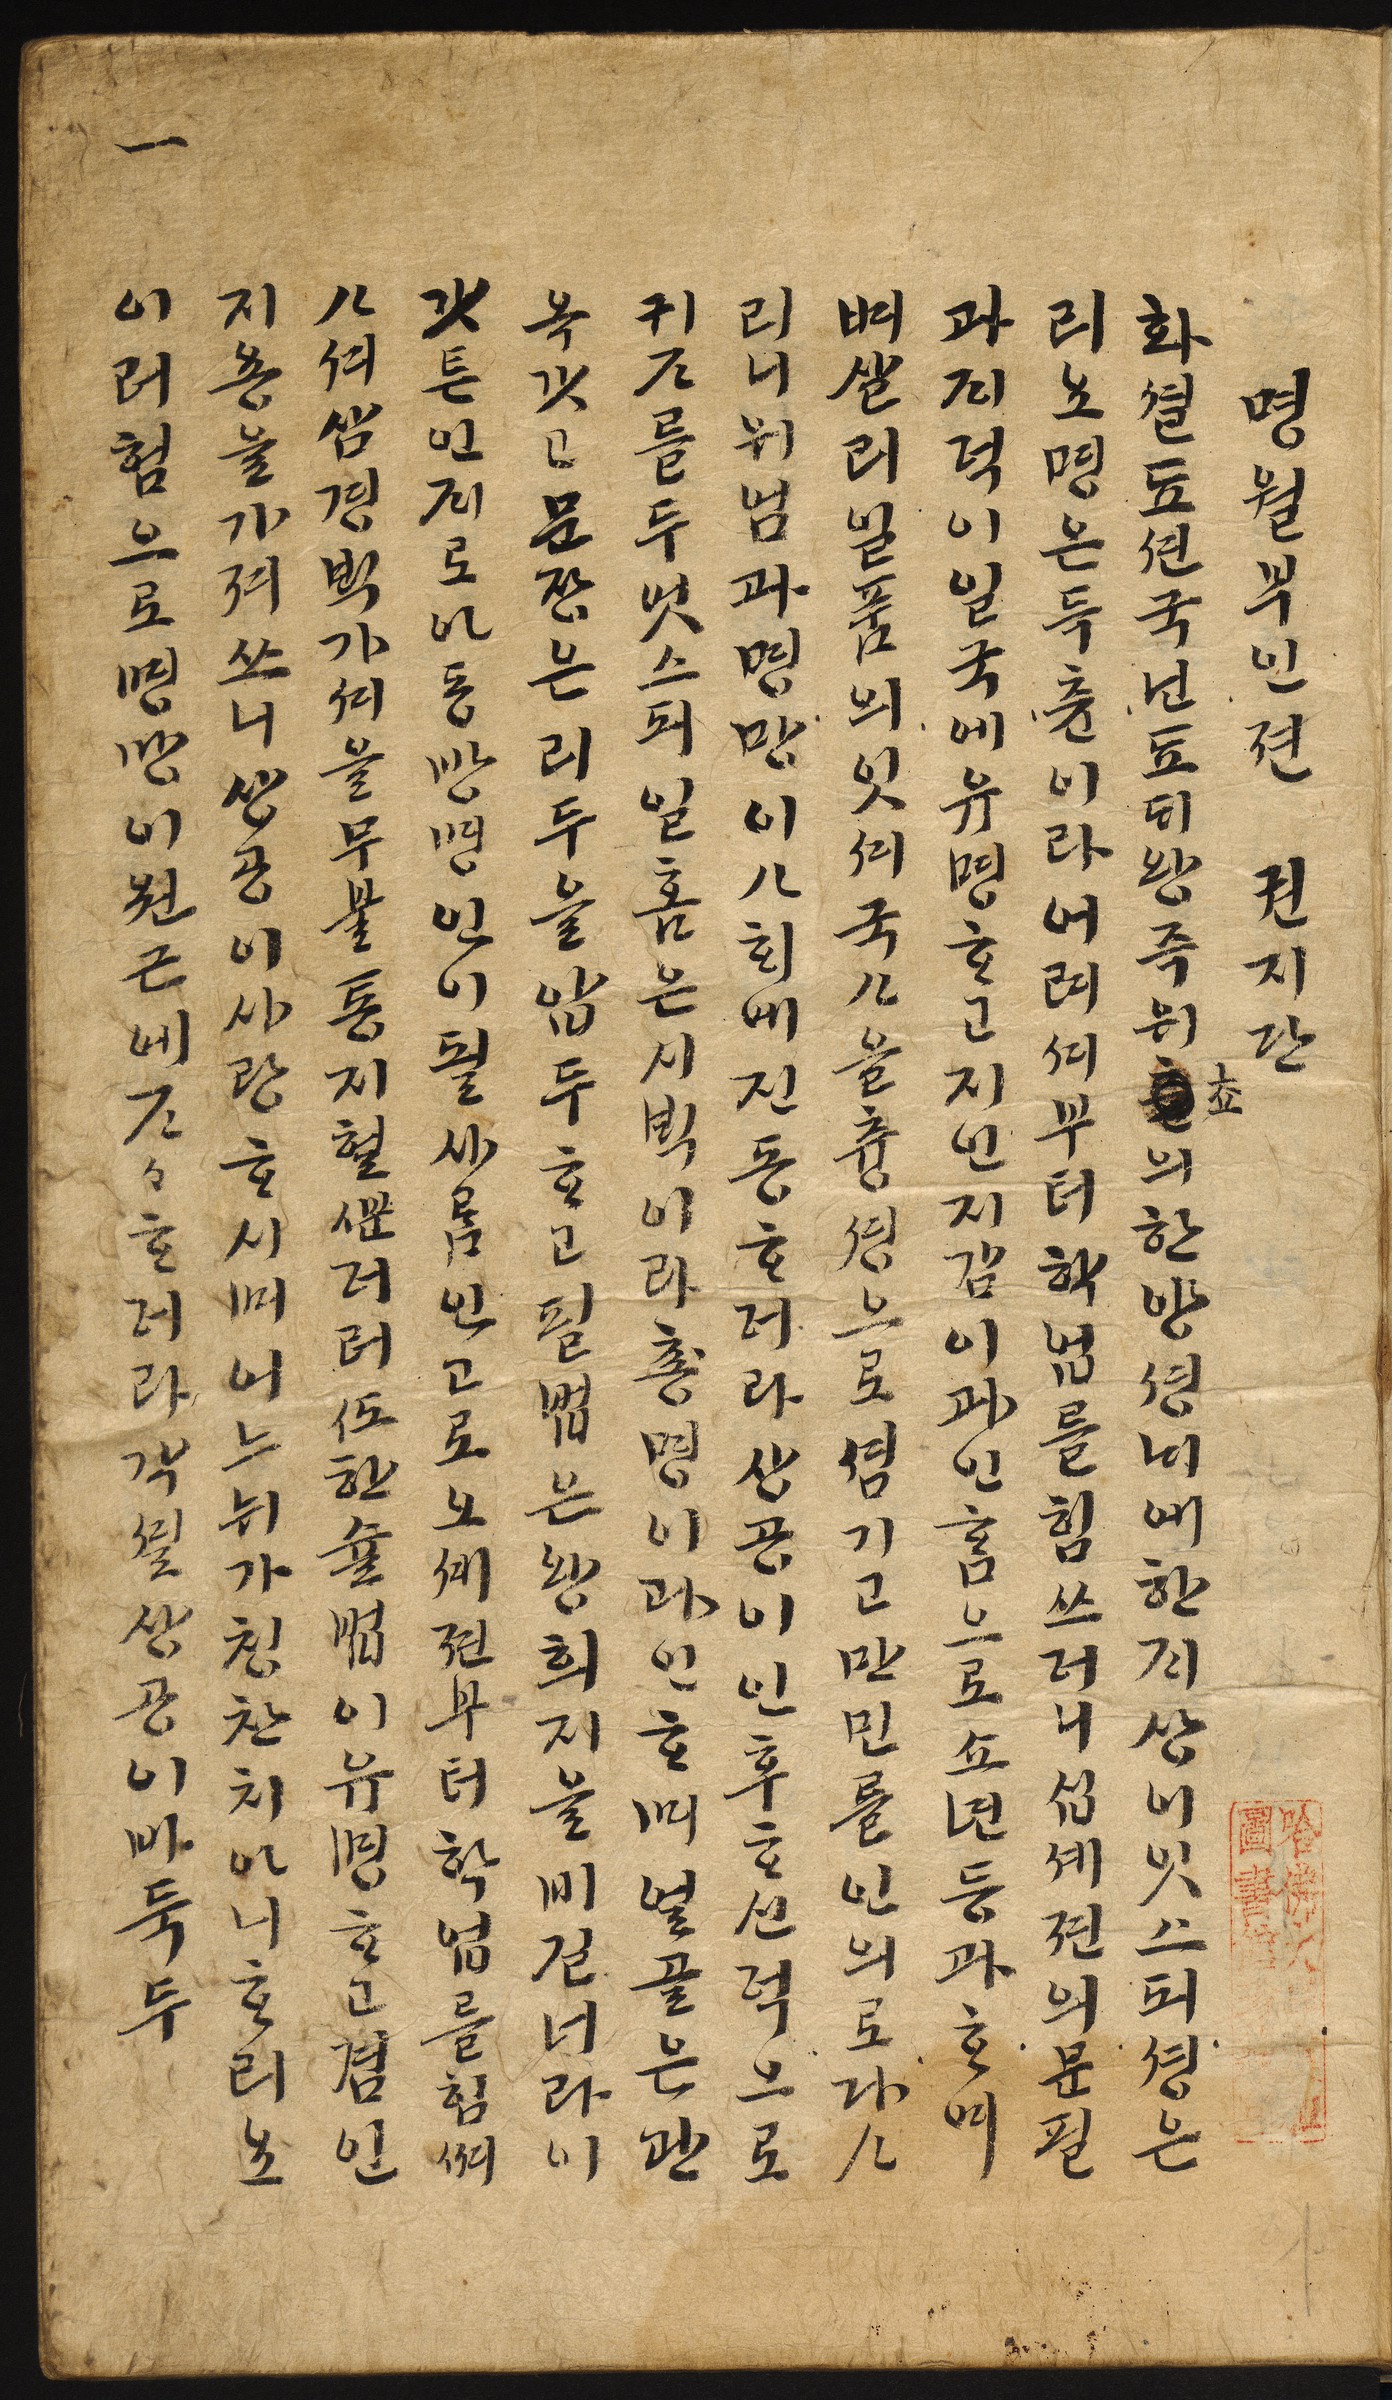 명월부인젼 권지단
화셜됴션국년됴ᄃᆡ왕즉위초의한방셩ᄂᆡ에한ᄌᆡ상이잇스되셩은
리뇨명은득츈이라어려셔부터학업를힘쓰러니십셰젼의문필
과ᄌᆡ덕이일국에유명ᄒᆞ고지인지감이과인홈으로쇼년등과ᄒᆞ며
벼살리일품의잇셔국ᄉᆞ을츙셩으로셤기고만민를인의로다ᄉᆞ
리니위범과명망이ᄉᆞ희에진동ᄒᆞ러라상공이인후ᄒᆞ신덕으로
귀ᄌᆞ를두엇스되일홈은시ᄇᆡᆨ이라총명이과인ᄒᆞ며얼골은관
옥갓고문쟝은리두을압두ᄒᆞ고필법은왕희지을비긴너라이
갓튼인ᄌᆡ로ᄋᆞ동방명인이될사름인고로오셰젼부터학업를힘써
ᄉᆞ셔삼경ᄇᆡᆨ가셔을무불통지혈ᄲᅮᆫ더러ᄯᅩ한슐법이유명ᄒᆞ고겸인
지용을가져쓰니상공이사랑ᄒᆞ시며어느뉘가칭찬치ᄋᆞ니ᄒᆞ리뇨
이러험으로명망이원근에ᄌᆞᄌᆞᄒᆞ더라각셜상공이바둑두
一
哈佛大
圖書